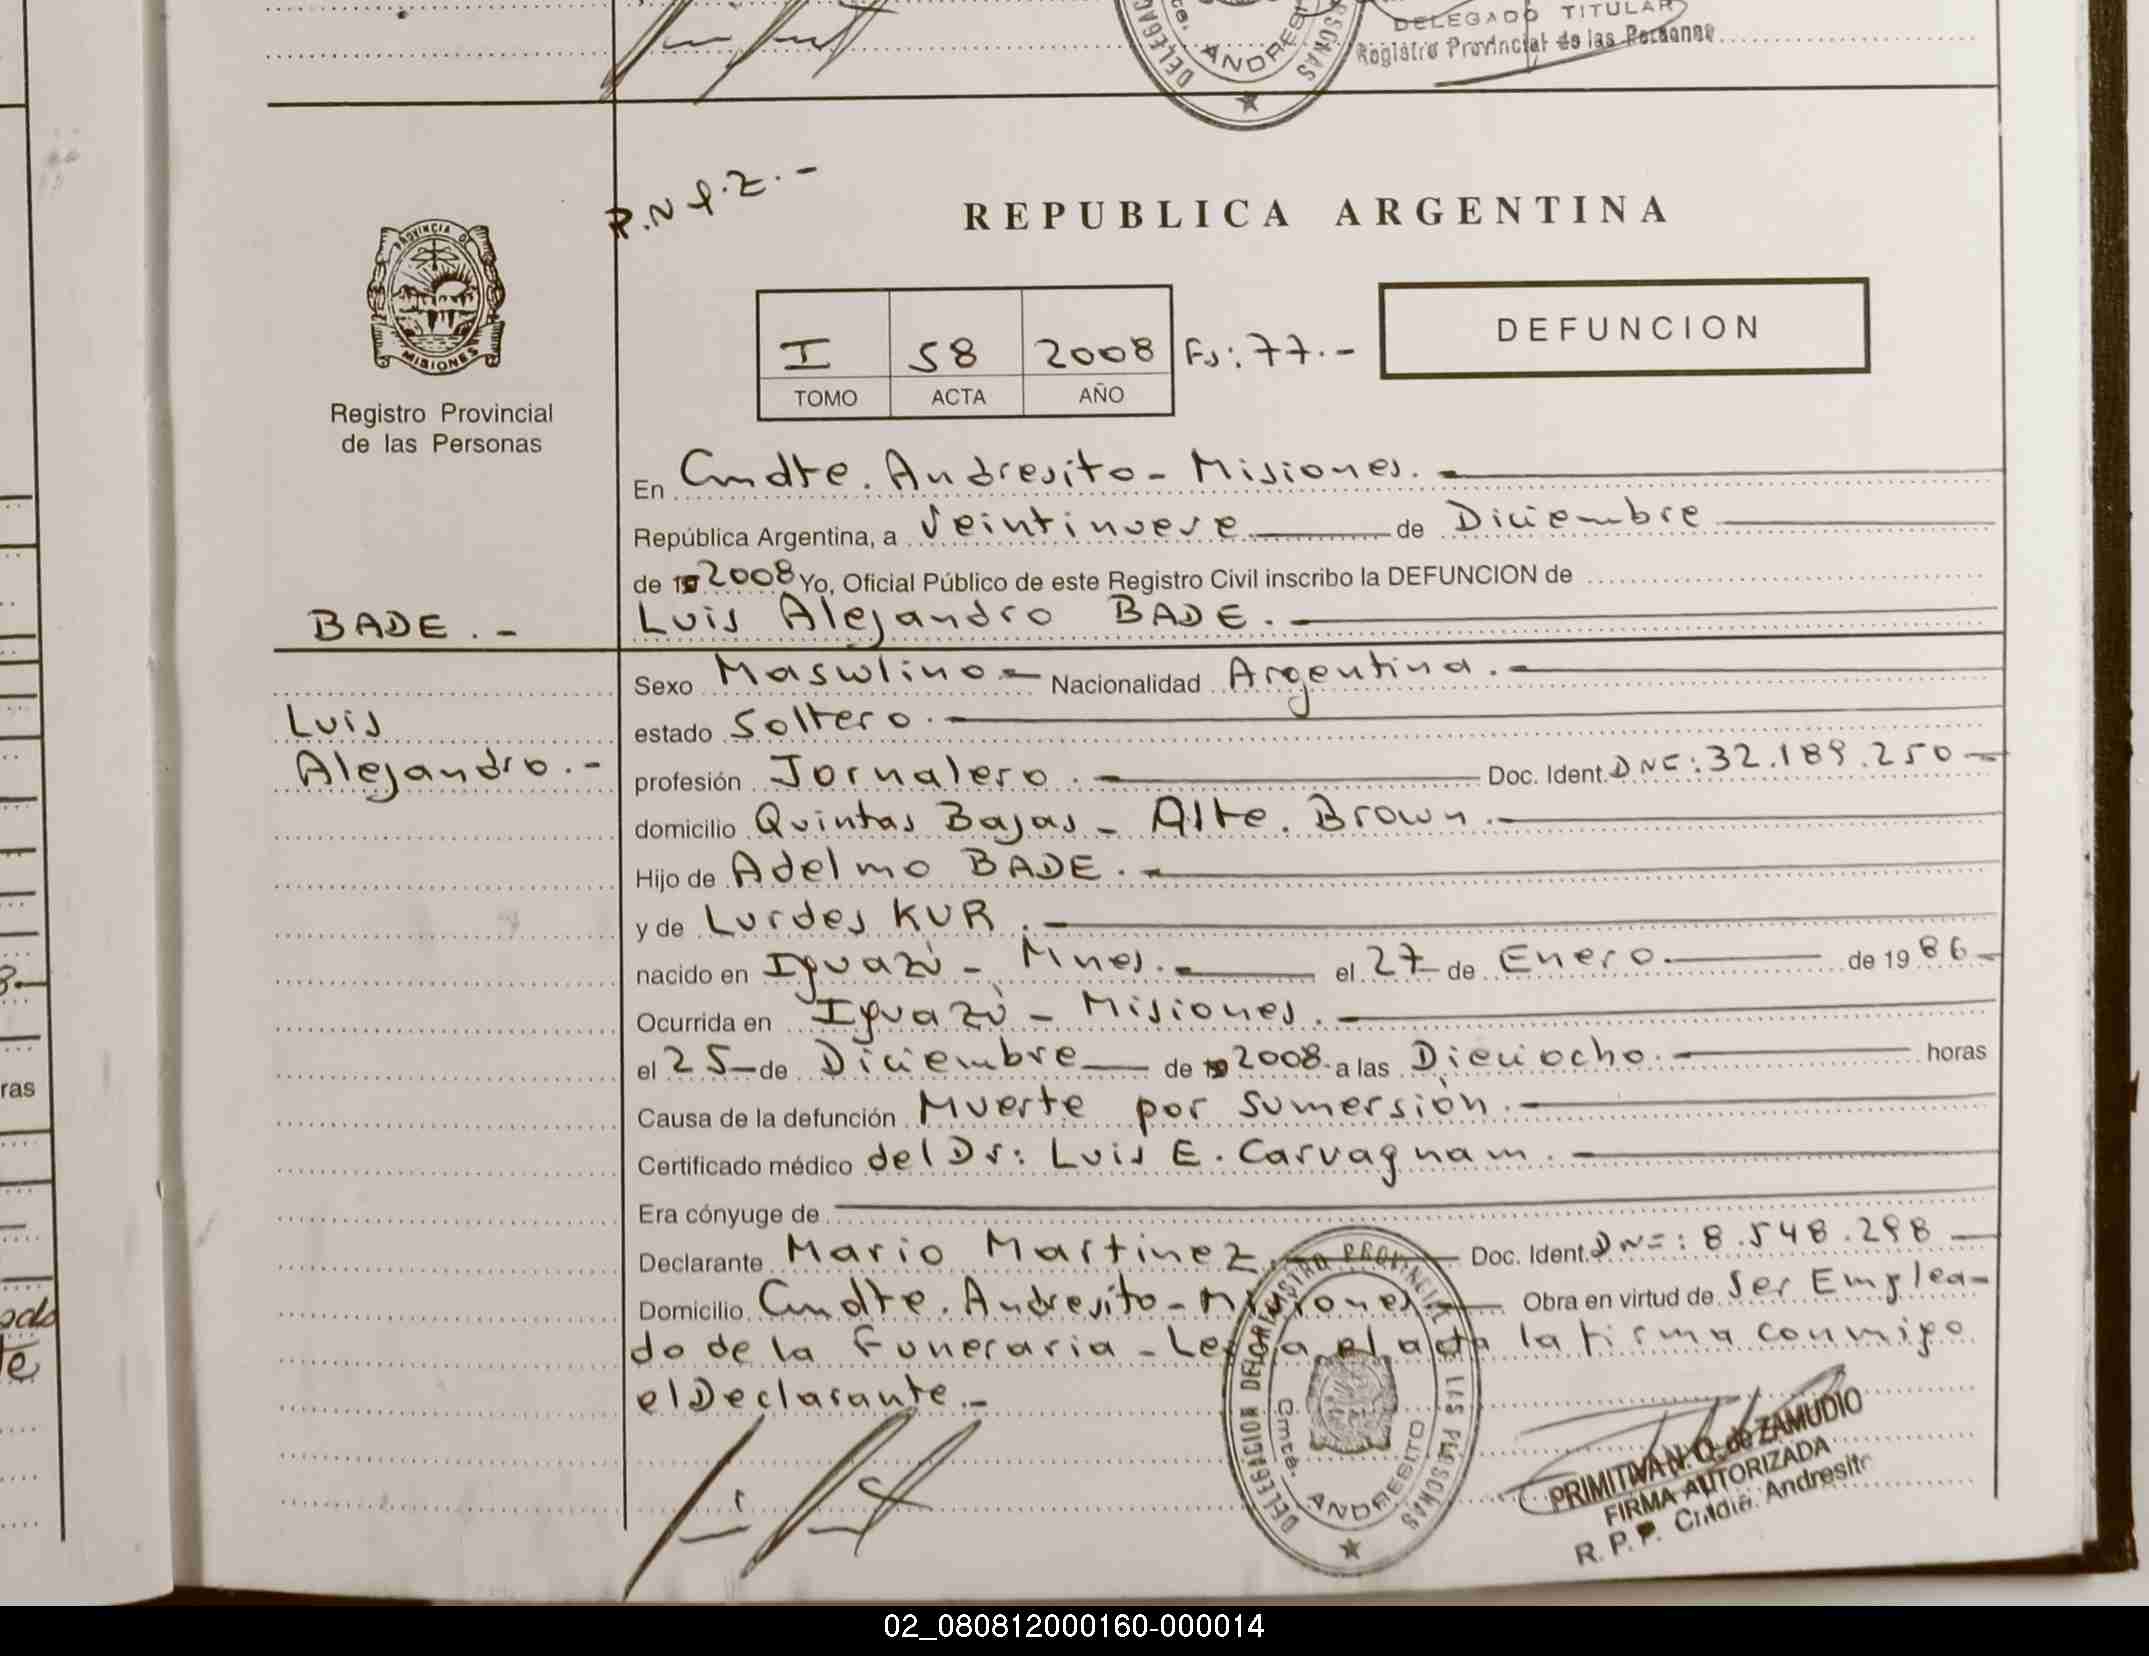 DELEGADO TITULAR
Registro Provincial de las Personas
ANDRESITO
REPUBLICA ARGENTINA
PROVINCIA DE
MISIONES
I 58 2008 Fs: 77.-
DEFUNCION
TOMO ACTA AÑO
Registro Provincial
de las Personas
En Cmdte. Andresito - Misiones.
República Argentina, a Veintinueve de Diciembre
de 19 2008 Yo, Oficial Público de este Registro Civil inscribo la DEFUNCION de
BADE.- Luis Alejandro BADE.
Sexo Masculino Nacionalidad Argentina.
Luis
estado Soltero.
Alejandro.-
profesión Jornalero. Doc. Ident. DNI: 32.189.250
domicilio Quintas Bajas - Alte. Brown.
Hijo de Adelmo BADE.
y de Lurdes KUR.
nacido en Iguazú - Mnes. el 27 de Enero de 1986
Ocurrida en Iguazú - Misiones.
el 25 de Diciembre de 19 2008 a las Dieciocho. horas
Causa de la defunción Muerte por sumersión.
Certificado médico del Dr: Luis E. Carvagnam.
Era cónyuge de
Declarante Mario Martinez. Doc. Ident. DNI: 8.548.298
Domicilio Cmdte. Andresito - Misiones. Obra en virtud de Ser Emplea-
do de la Funeraria - Leida el acta la firma conmigo
el Declarante.-
DELEGACION DEL REGISTRO PROVINCIAL DE LAS PERSONAS
Cmte. ANDRESITO
PRIMITIVA N. O. de ZAMUDIO
FIRMA AUTORIZADA
R. P. P. Cmdte. Andresito
ras
02_080812000160-000014